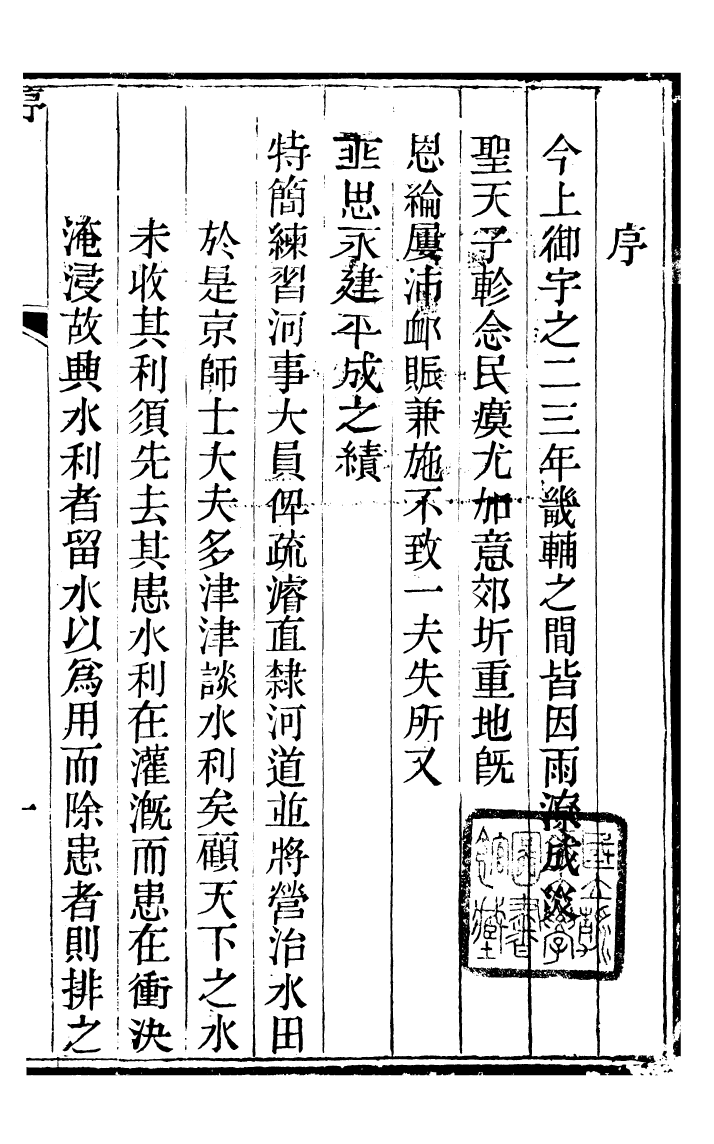 序
今上御宇之二三年畿輔之間皆因雨潦成災
聖天子軫念民瘼尤加意郊圻重地旣
恩綸屢沛卹賑兼施不致一夫失所又
亟思永建平成之績
特簡練習河事大員俾疏濬直隸河道並將營治水田
於是京師士大夫多津津談水利矣顧天下之水
未收其利須先去其患水利在灌漑而患在衝決
淹浸故興水利者留水以爲用而除患者則排之
序
一